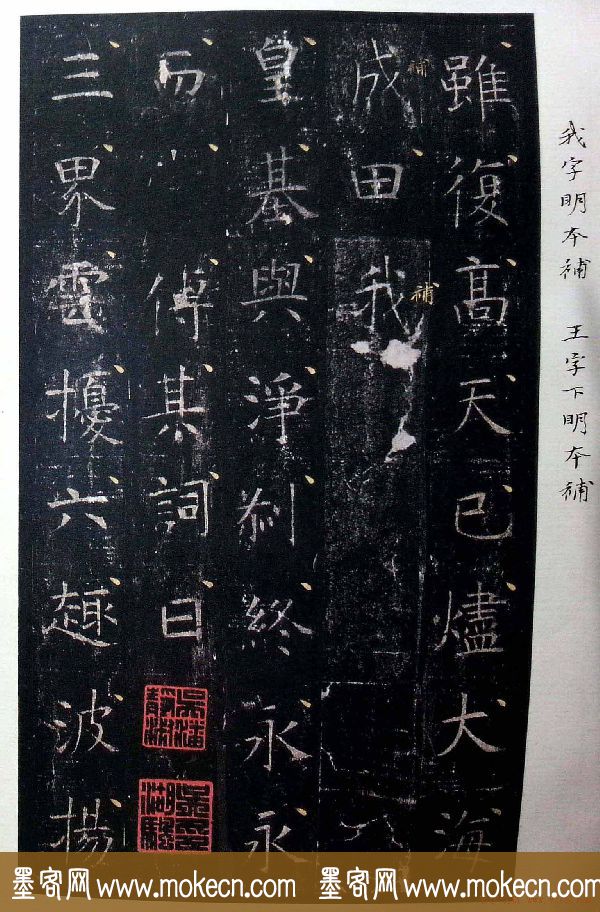 雖復高天已燼大海
成田我
皇基與淨剎終永永
而傳其詞曰
三界雲擾六趣波揚
補
補
我字明本補 王字下明本補
墨客网 www.mokecn.com 墨客网 www.mokecn.com